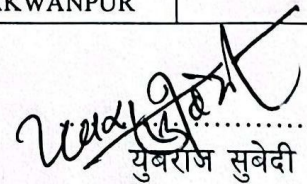 KWANPUR
युबराज सुबेदी